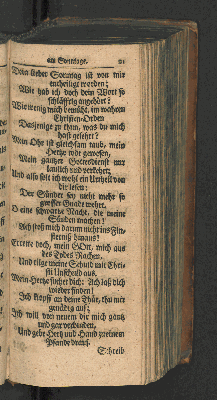 am Sonntage. 21
Dein lieber Sonntag ist von mir
entheiliget worden;
Wie hab ich doch dein Wort so
schläffrig angehört?
Wie wenig mich bemüht, im wahren
Christen-Orden
Dasjenige zu thun, was du mich
hast gelehrt?
Mein Ohr ist gleichsam taub, mein
Hertze todt gewesen,
Mein gantzer Gottesdienst nur
laulich und verkehrt,
Und also solt ich wohl ein Urtheil von
dir lesen:
Der Sünder sey nicht mehr so
grosser Gnade wehrt.
O eine schwartze Nacht, die meine
Sünden machen!
Ach stoß mich darum nicht ins Fin-
sterniß hinaus!
Errette doch, mein GOtt, mich aus
des Todes Rachen,
Und tilge meine Schuld mit Chri-
sti Unschuld aus.
Mein Hertze suchet dich: Ach laß dich
wieder finden!
Ich klopff an deine Thür, thu mir
genädig auf;
Ich will von neuem dir mich gantz
und gar verbinden,
Und gebe Hertz und Hand zu einem
Pfande drauf.
Schreib